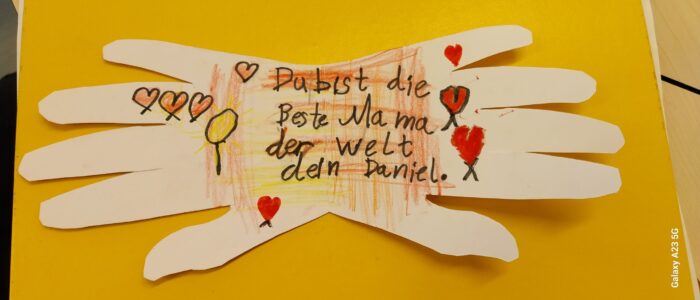 Du bist die
Beste Mama
der Welt
dein Daniel.
Galaxy A23 5G